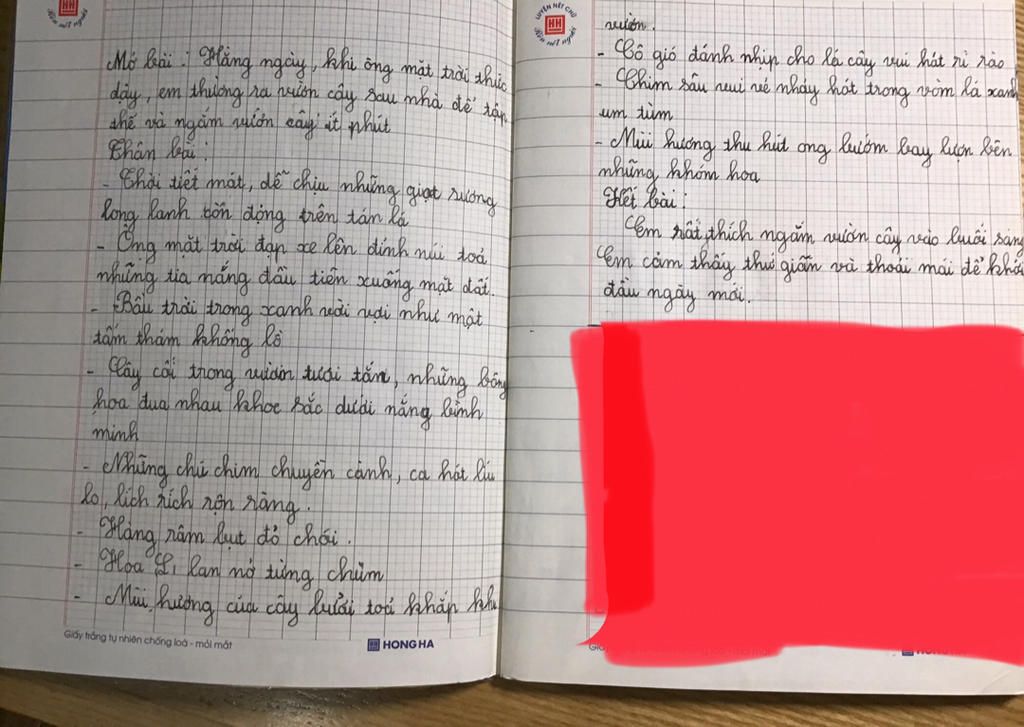 HH
Nên nét người
Mở bài : Hằng ngày, khi ông mặt trời thức
dậy, em thường ra vườn cây sau nhà để tập
thể và ngắm vườn cây ít phút
Thân bài :
- Thời tiết mát, dễ chịu những giọt sương
long lanh còn đọng trên tán lá
- Ông mặt trời đạp xe lên đỉnh núi toả
những tia nắng đầu tiên xuống mặt đất.
- Bầu trời trong xanh vời vợi như một
tấm thảm khổng lồ
- Cây cối trong vườn tươi tắn, những bông
hoa đua nhau khoe sắc dưới nắng bình
minh
- Những chú chim chuyền cành, ca hát líu
lo, lích rích rộn ràng.
- Hàng râm bụt đỏ chói.
- Hoa lan nở từng chùm
- Mùi hương của cây bưởi toả khắp khu
Giấy trắng tự nhiên chống loá - mỏi mắt
HONG HA
LUYỆN NÉT CHỮ
HH
Rèn nết người
vườn.
- Cô gió đánh nhịp cho lá cây vui hát rì rào
- Chim sâu vui vẻ nhảy hót trong vòm lá xanh
um tùm
- Mùi hương thu hút ong bướm bay lượn bên
những khóm hoa
Kết bài :
Em rất thích ngắm vườn cây vào buổi sáng
Em cảm thấy thư giãn và thoải mái để khởi
đầu ngày mới.